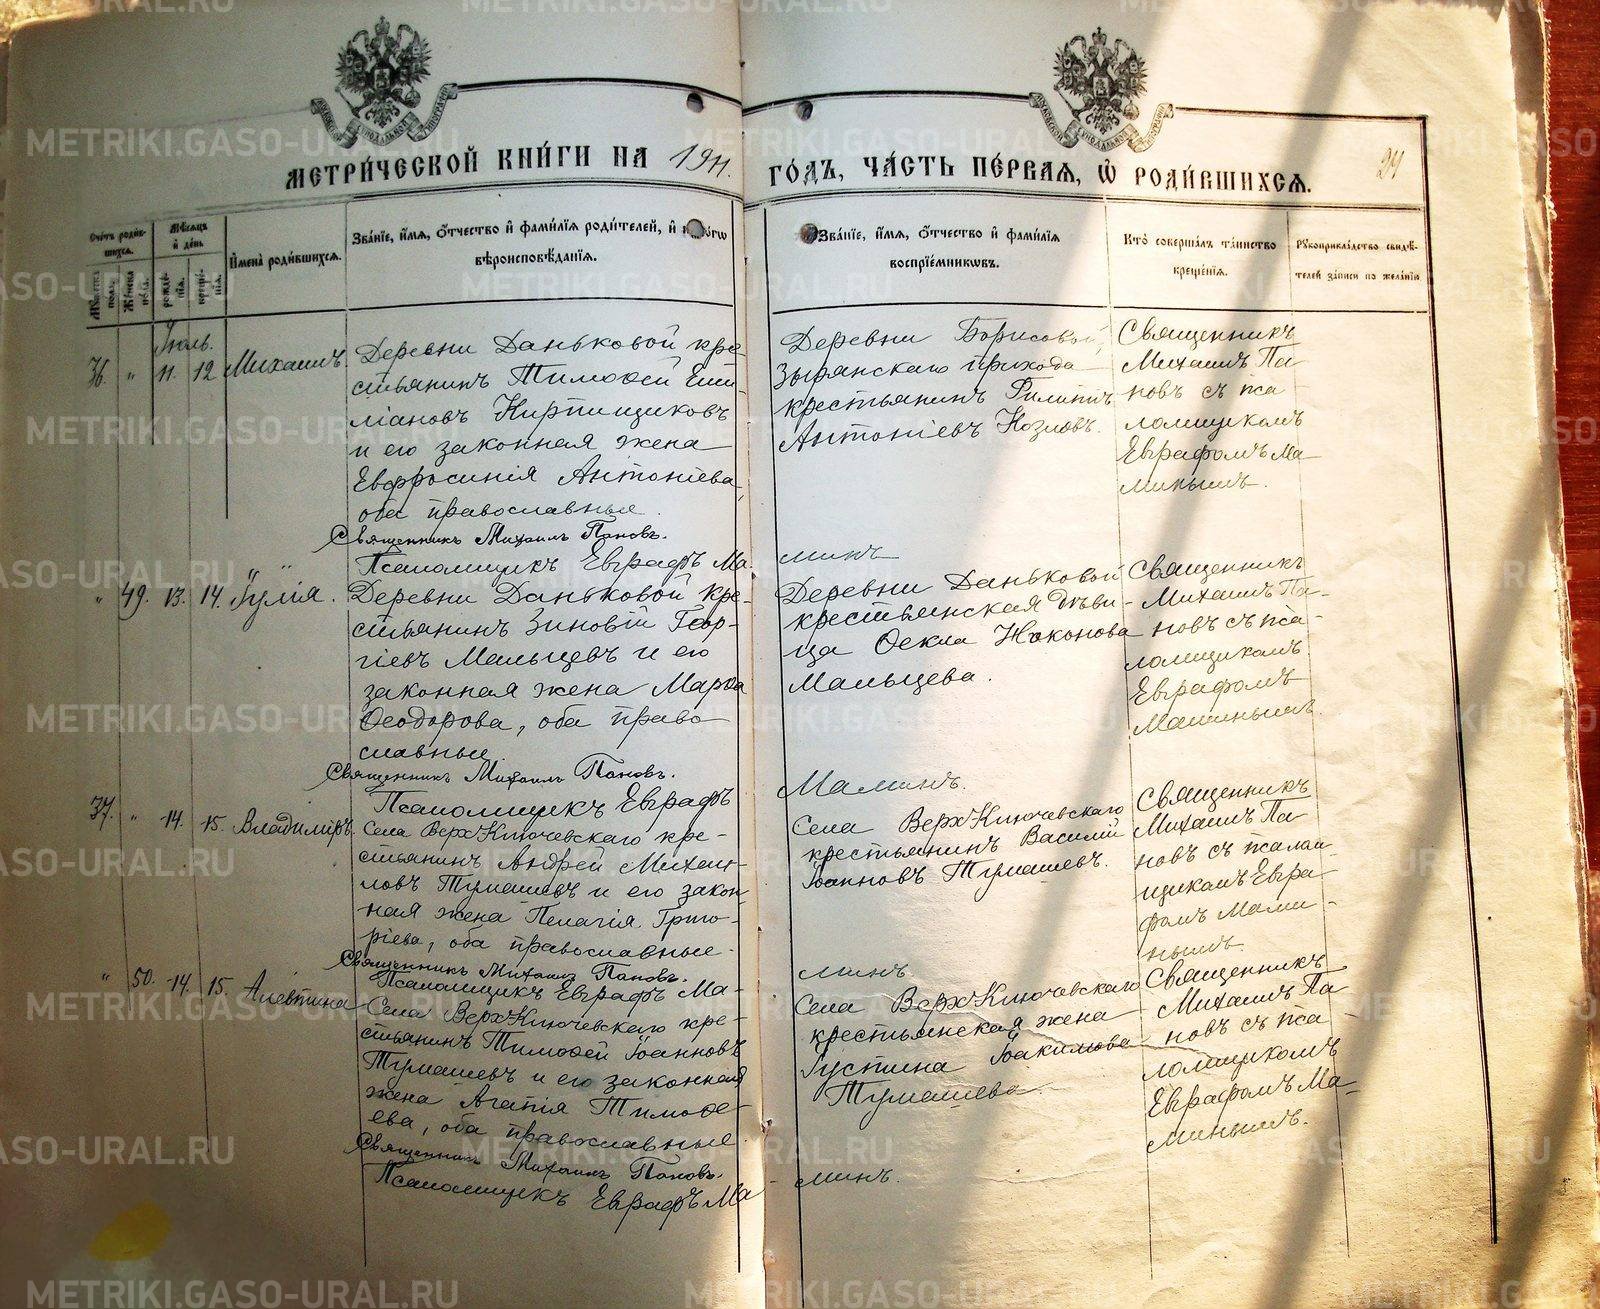 МЕТРИ́ЧЕСКОЙ КНИ́ГИ НА 1911.
ГОДЪ, ЧА́СТЬ ПЕ́РВАЯ, Ѡ РОДИ́ВШИХСЯ.
24
Счетъ роди́вшихся.
Мѣсяцъ и день
И́мена роди́вшихся.
Зва́нїе, и́мя, о́тчество и҆ фами́лїя роди́телей, и҆ ко́тѡрагѡ
вѣроисповѣ́данїя.
Мужска пола.
Женска пола.
рожденїя.
крещенїя.
Зва́нїе, и́мя, о́тчество и҆ фами́лїя
воспрїе́мниковъ.
Кто̀ соверша́лъ та́инство
креще́нїя.
Рукоприкла́дство свидѣ́телей
за́писи по жела́нїю
Іюль.
36. " 11. 12 Михаилъ.
Деревни Даньковой кре-
стьянинъ Тимоѳей Еми-
ліановъ Кирпищиковъ
и его законная жена
Евфросинія Антоніева,
оба православные.
Священникъ Михаилъ Пановъ.
Псаломщикъ Евграфъ Ма-
минъ
Деревни Борисовой,
Зырянскаго прихода
крестьянинъ Филиппъ
Антоніевъ Козловъ.
Священникъ
Михаилъ Па-
новъ съ пса-
ломщикомъ
Евграфомъ Ма-
минымъ.
" 49. 13. 14. Іулія.
Деревни Даньковой кре-
стьянинъ Зиновій Геор-
гіевъ Мальцевъ и его
законная жена Марѳа
Ѳеодорова, оба право-
славные.
Священникъ Михаилъ Пановъ.
Псаломщикъ Евграфъ
Маминъ.
Деревни Даньковой
крестьянская дѣви-
ца Ѳекла Никонова
Мальцева.
Священникъ
Михаилъ Па-
новъ съ пса-
ломщикомъ
Евграфомъ
Маминымъ.
37. " 14. 15. Владиміръ.
Села ВерхКлючевскаго кре-
стьянинъ Андрей Михаи-
ловъ Тумашевъ и его закон-
ная жена Пелагія Григо-
ріева, оба православные.
Священникъ Михаилъ Пановъ.
Псаломщикъ Евграфъ Ма-
минъ
Села ВерхКлючевскаго
крестьянинъ Василій
Іоанновъ Тумашевъ.
Священникъ
Михаилъ Па-
новъ съ псалом-
щикомъ Евгра-
фомъ Мами-
нымъ.
" 50. 14. 15. Алевтина
Села ВерхКлючевскаго кре-
стьянинъ Тимоѳей Іоанновъ
Тумашевъ и его законная
жена Агапія Тимоѳе-
ева, оба православные.
Священникъ Михаилъ Пановъ.
Псаломщикъ Евграфъ Ма-
минъ.
Села ВерхКлючевскаго
крестьянская жена
Іустина Іоакимова
Тумашева.
Священникъ
Михаилъ Па-
новъ съ пса-
ломщикомъ
Евграфомъ Ма-
минымъ.
METRIKI.GASO-URAL.RU